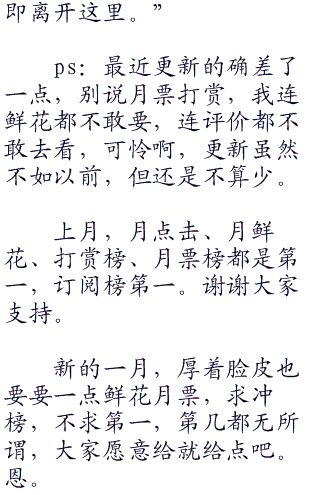 即离开这里。”
ps：最近更新的确差了
一点，别说月票打赏，我连
鲜花都不敢要，连评价都不
敢去看，可怜啊，更新虽然
不如以前，但还是不算少。
上月，月点击、月鲜
花、打赏榜、月票榜都是第
一，订阅榜第一。谢谢大家
支持。
新的一月，厚着脸皮也
要要一点鲜花月票，求冲
榜，不求第一，第几都无所
谓，大家愿意给就给点吧。
恩。